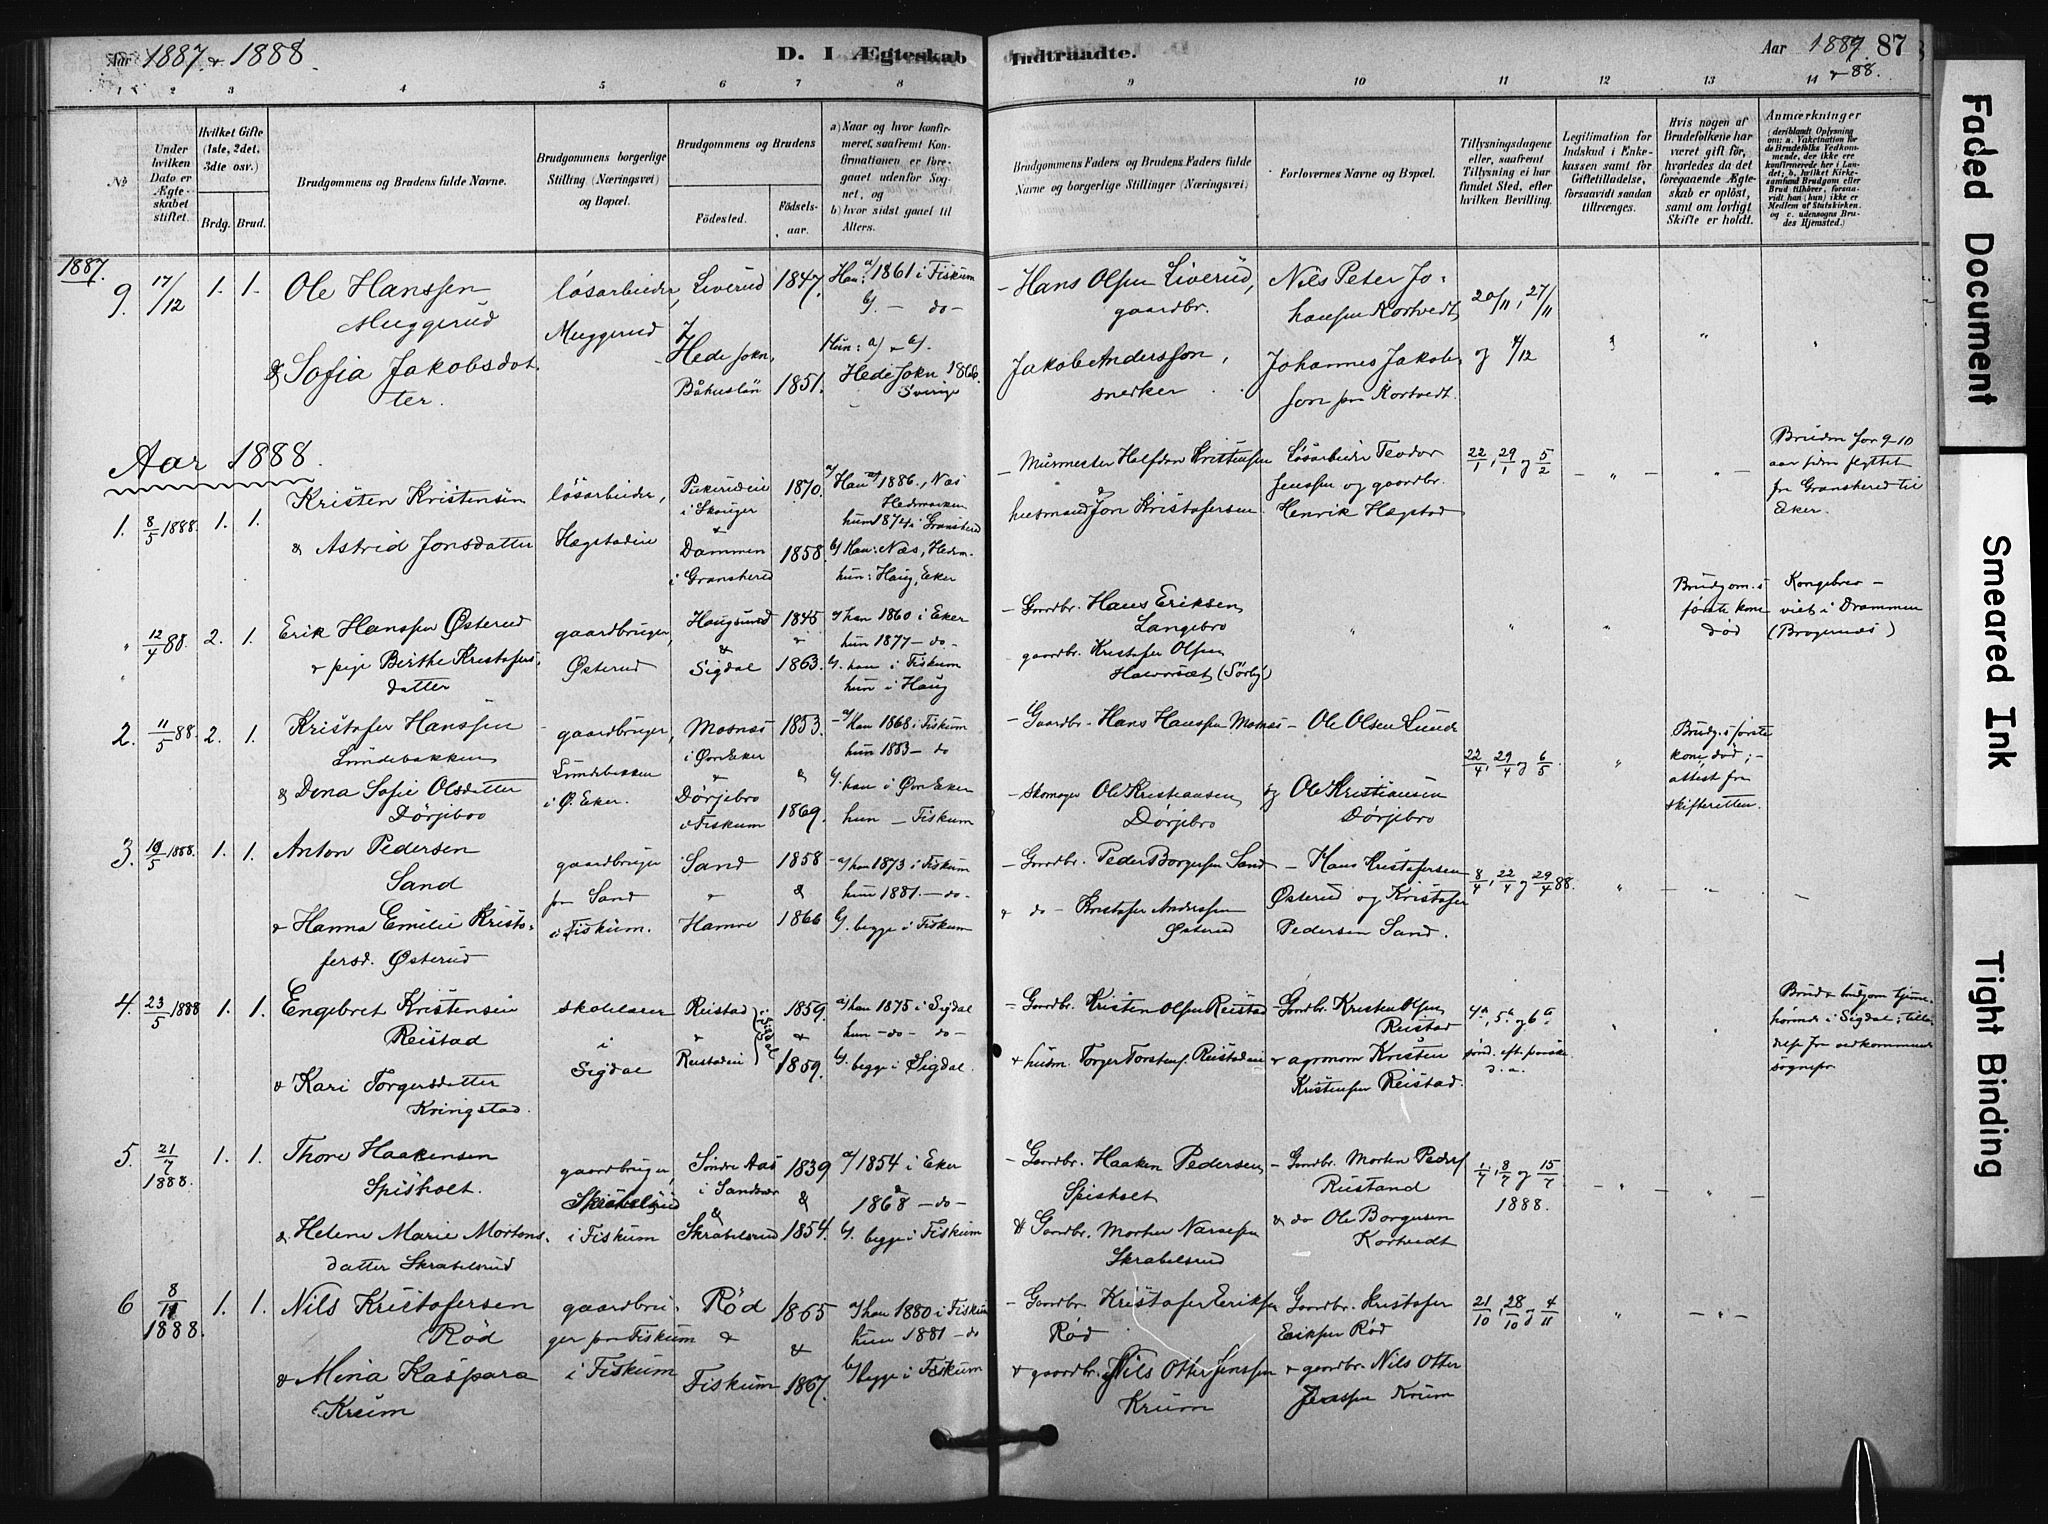 Aar 1887 & 1888.
D. I Ægteskab
Indtraadte.
Aar 1887 87
& 88.
1 2 3 4 5 6 7 8 9 10 11 12 13 14
№
Under hvilken Dato er Ægteskabet stiftet.
Hvilket Gifte (1ste, 2det, 3die osv.)
Brdg. Brud.
Brudgommens og Brudens fulde Navne.
Brudgommens borgerlige Stilling (Næringsvei) og Bopæl.
Brudgommens og Brudens
Fødested.
Fødselsaar.
a) Naar og hvor konfirmeret, saafremt Konfirmationen er foregaaet udenfor Sognet, og
b) hvor sidst gaaet til Alters.
Brudgommens Faders og Brudens Faders fulde Navne og borgerlige Stillinger (Næringsvei)
Forlovernes Navne og Bopæl.
Tillysningsdagene eller, saafremt Tillysning ei har fundet Sted, efter hvilken Bevilling.
Legitimation for Indskud i Enkekassen samt for Giftetilladelse, forsaavidt saadan tiltrænges.
Hvis nogen af Brudefolkene har været gift før, hvorledes da det foregaaende Ægteskab er opløst, samt om lovligt Skifte er holdt.
Anmærkninger
(deriblandt Oplysning om: a. Vakcination for de Brudefolks Vedkommende, der ikke ere konfirmerede her i Landet; b. hvilket Kirkesamfund Brudgom eller Brud tilhører, forsaavidt han (hun) ikke er Medlem af Statskirken, og c. udensogns Brudes Hjemsted.)
1887.
9. 17/12 1. 1. Ole Hanssen Muggerud
& Sofia Jakobsdotter.
løsarbeider, Muggerud
Liverud 1847.
& Hede sokn, Båhuslän 1851.
Han: a/ 1861 i Fiskum
b/. — do —
Hun: a/ & b/.
Hede sokn 1866. Sverige
— Hans Olsen Liverud, gaardbr.
Jakob Andersson, snedker
Nils Peter Johansen Kortvedt,
Johannes Jakobsson fra Kortvedt.
20/11, 27/11 og 4/12
Aar 1888.
1. 8/5 1888. 1. 1. Kristen Kristensen
& Astrid Jonsdatter
løsarbeider, Hægstadeie
i Skouger 1870.
& Dammen i Gransherred 1858.
a/ Han 1886, Næs Hedemarken
hun 1874 i Gransherred
b/ Han: Næs, Hedem.
hun: Haug, Eker
— Murmester Halfdan Kristensen
& husmand Jon Kristofersen
Løsarbeider Teodor Jenssen og gaardbr. Henrik Hægstad
22/1, 29/1 og 5/2
Bruden for 9-10 aar siden flyttet fra Gransherred til Eker.
" 12/4 88. 2. 1. Erik Hanssen Østerud
& pige Berthe Kristofersdatter
gaardbruger, Østerud
Haugsund 1845
& Sigdal 1863.
a/ han 1860 i Eker
hun 1877 — do —
b/. han i Fiskum
hun i Haug
— Gaardbr. Hans Eriksen Langebro
— gaardbr. Kristofer Olsen Halvorsæt, (Sørby)
Brudgom.s første kone død
Kongebrev — viet i Drammen (Bragernæs)
2. 11/5 88. 2. 1. Kristofer Hanssen Lundebakken
& Dena Sofie Olsdatter Dørjebro
— gaardbruger, Lundebakken i Ø. Eker.
Mosnæs i Øvr Eker 1853.
& Dørjebro i Fiskum 1869.
— a/ Han 1868 i Fiskum
hun 1883 — do
b/. han i Øvr Eker
hun — Fiskum
— Gaardbr. Hans Hanssen Mosnæs
Skomager Ole Kristiansen, Dørjebro
— Ole Olsen Lunde
og Ole Kristiansen Dørjebro
22/4, 29/4 og 6/5.
Brudg.s første kone død; — attest fra skifteretten.
3. 19/5 1888. 1. 1. Anton Pedersen Sand
& Hanna Emilie Kristofersd. Østerud
gaardbruger fra Sand i Fiskum.
Sand 1858
& Hamre 1866
— a/ han 1873 i Fiskum
hun 1881. — do.
b/. begge i Fiskum
— Gaardbr. Peder Borgersen Sand
& do — Kristofer Anderssen Østerud
— Hans Kristofersen Østerud og Kristofer Pedersen Sand.
8/4, 22/4 og 29/4 88.
4. 23/5 1888 1. 1. Engebret Kristensen Reistad
& Kari Torgersdatter Kringstad.
skolelærer i Sigdal
Reistad 1859
& Reistadeie i Sigdal 1859.
a/ han 1875 i Sigdal
hun — do — do —
b/. begge i Sigdal.
— Gaardbr. Kristen Olsen Reistad
& husm. Torger Torstens. Reistadeie
Gaardbr. Kristen Olsen Reistad
& agronom Kristen Kristensen Reistad.
4de, 5te og 6te sønd. eft. paaske d. a.
Brud & brudgom hjemmehørende i Sigdal; tilladelse fra vedkommende sognepr.
5. 21/7 1888. 1. 1. Thore Haakensen Spisholt.
& Helene Marie Mortensdatter Skrabelsrud
gaardbruger, Skrabelsrud i Fiskum
Søndre Aas i Sandsvær 1839
& Skrabelsrud 1854.
a/ 1854 i Eker
& 1868 — do —
b/. begge i Fiskum
— Gaardbr. Haaken Pedersen Spisholt
& Gaardbr. Morten Narvesen Skrabelsrud
— Gaardbr. Morten Peders. Rustand
& do Ole Borgersen Kortvedt
1/7, 8/7 og 15/7 1888.
6 8/11 1888. 1. 1. Nils Kristofersen Rød
& Mina Kaspara Krum
gaardbruger fra Fiskum i Fiskum
Rød 1865
& Fiskum 1867.
a/ han 1880 i Fiskum
hun 1881 — do
b/ begge i Fiskum
— Gaardbr. Kristofer Eriksen Rød
& gaardbr. Nils Otter Jenssen Krum
Gaardbr. Kristofer Eriksen Rød
& gaardbr. Nils Otter Jenssen Krum
21/10, 28/10 og 4/11
Faded Document
Smeared Ink
Tight Binding